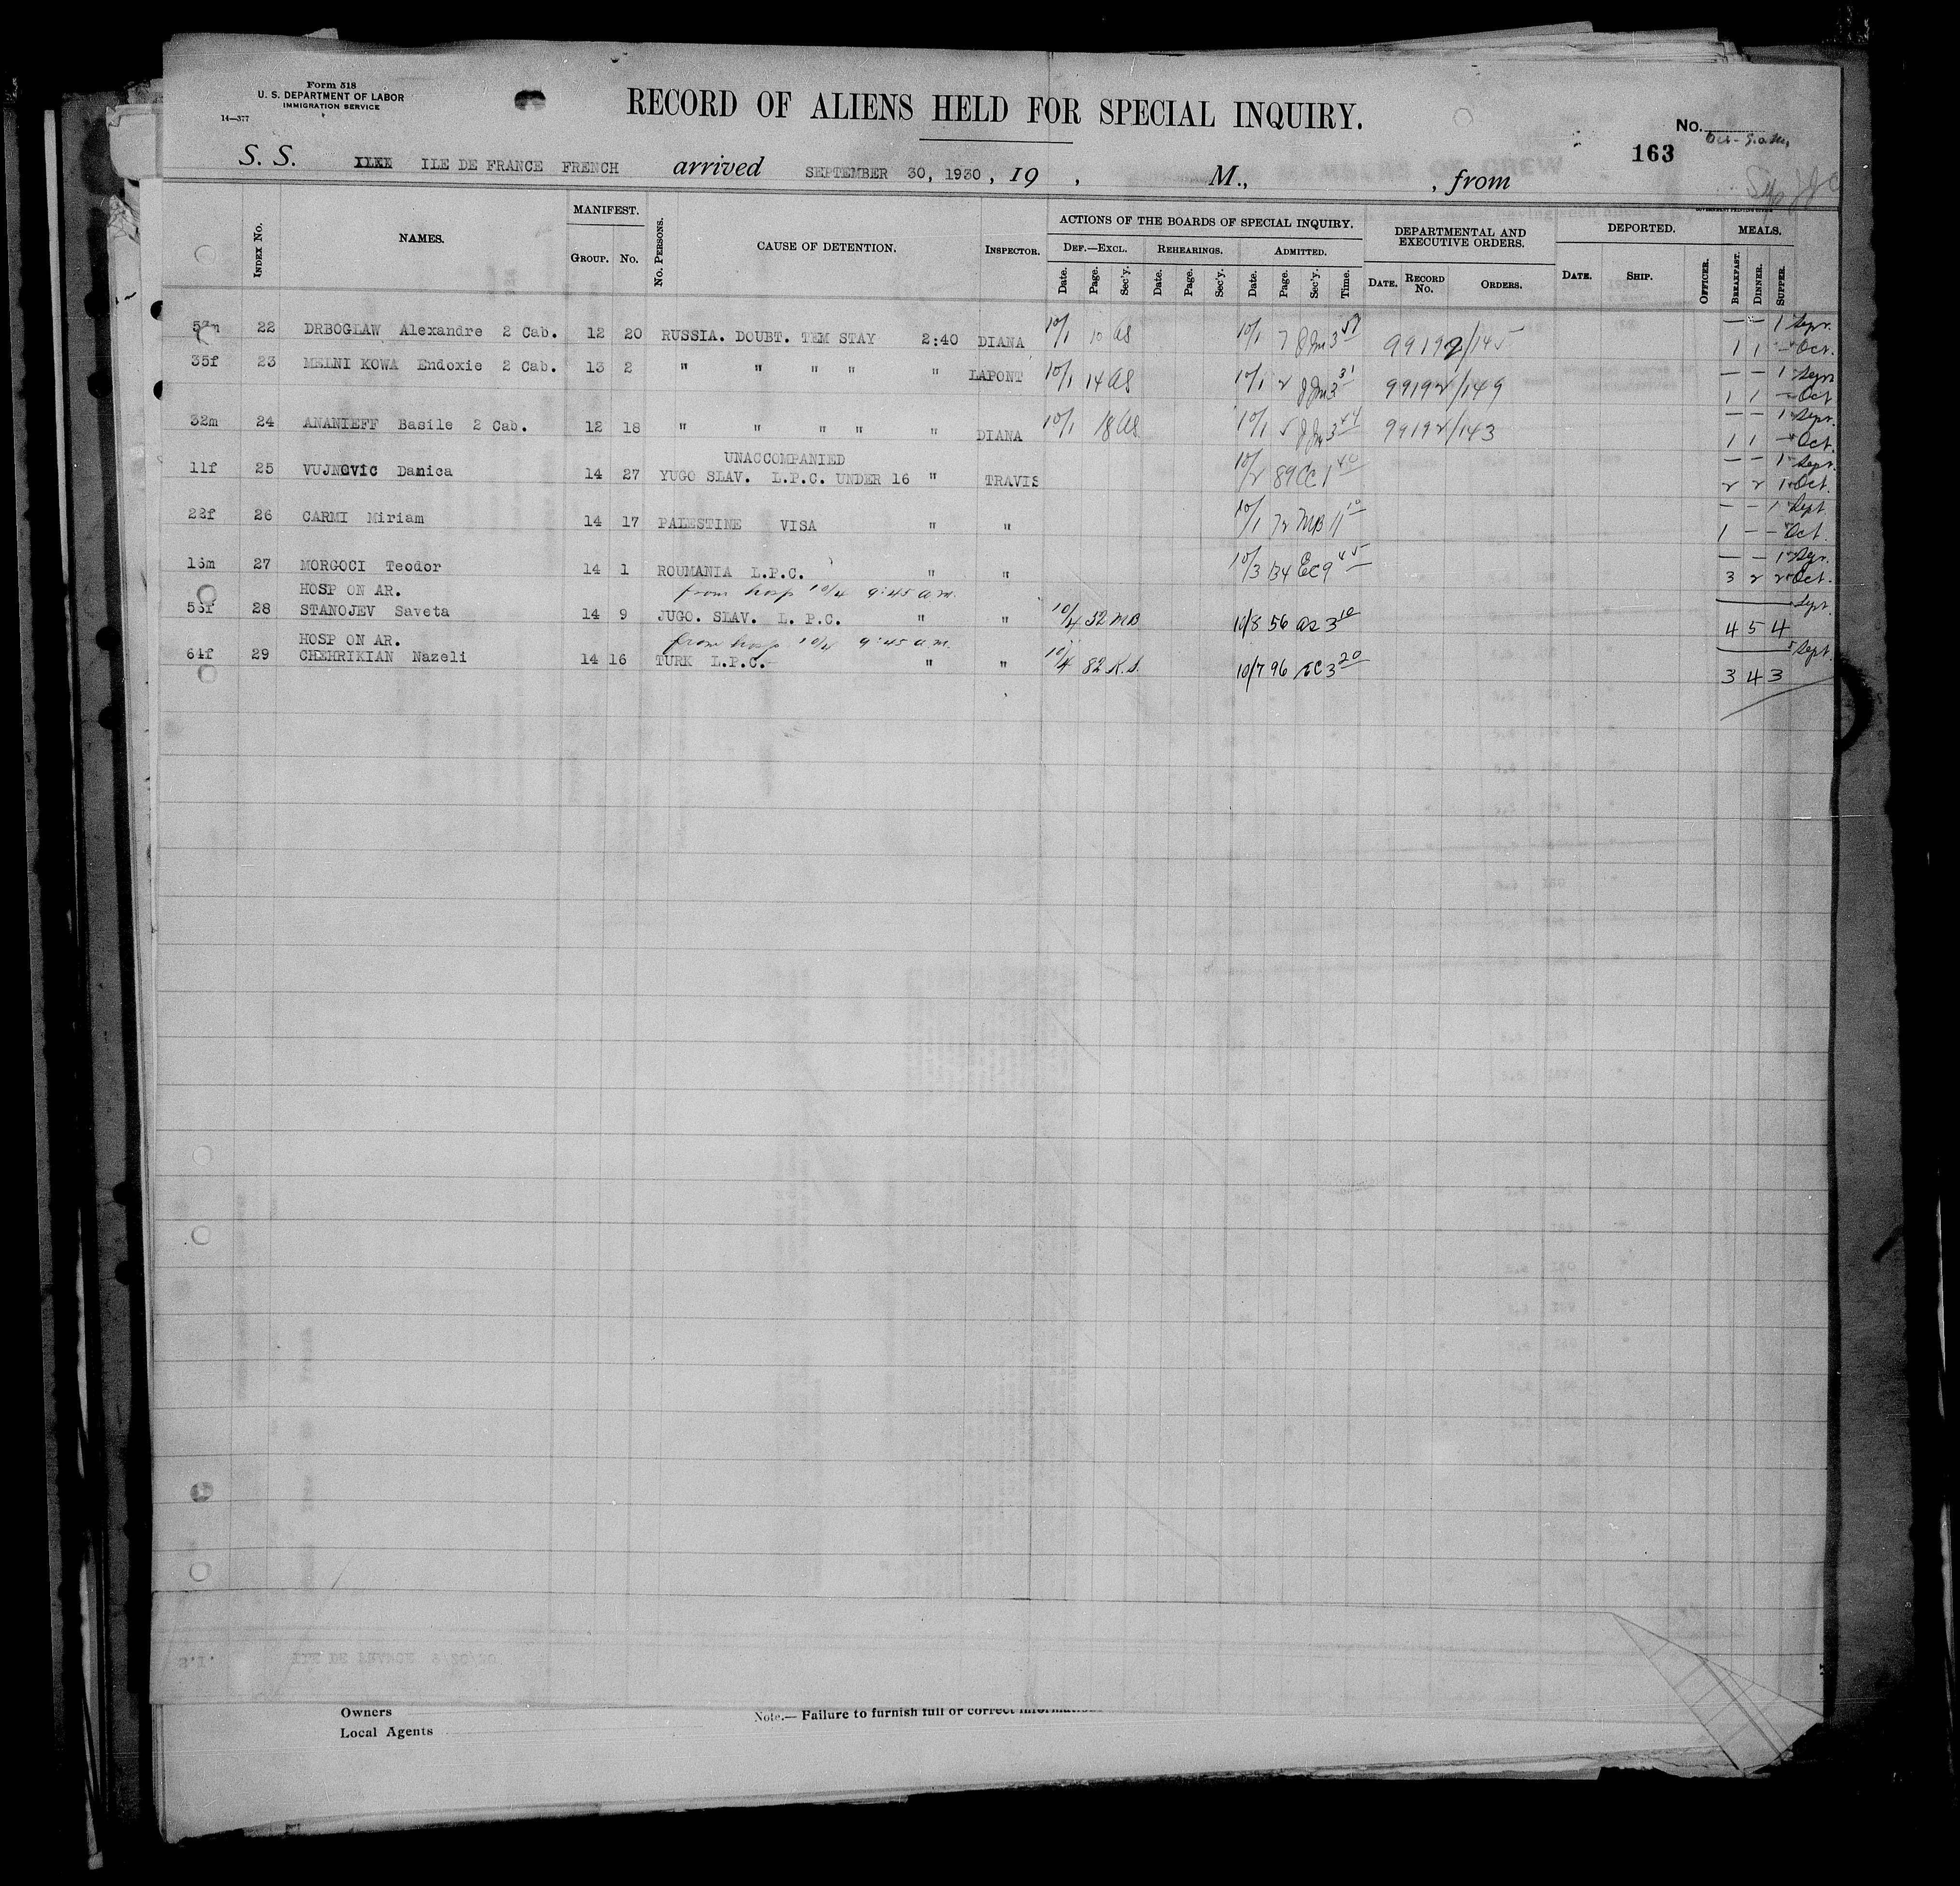 Form 518
U. S. DEPARTMENT OF LABOR
IMMIGRATION SERVICE
14—377
RECORD OF ALIENS HELD FOR SPECIAL INQUIRY.
No.
163
S. S. ILE DE FRANCE FRENCH arrived SEPTEMBER 30, 1930, 19 , M., , from
GOVERNMENT PRINTING OFFICE
INDEX No. NAMES. MANIFEST. GROUP. No. No. PERSONS. CAUSE OF DETENTION. INSPECTOR. ACTIONS OF THE BOARDS OF SPECIAL INQUIRY. DEPARTMENTAL AND EXECUTIVE ORDERS. DEPORTED. MEALS.
DEF.—EXCL. REHEARINGS. ADMITTED.
Date. Page. Sec'y. Date. Page. Sec'y. Date. Page. Sec'y. Time. DATE. RECORD No. ORDERS. DATE. SHIP. OFFICER. BREAKFAST. DINNER. SUPPER.
22 DRBOGLAW Alexandre 2 Cab. 12 20 RUSSIA. DOUBT. TEM STAY 2:40 DIANA 10/1 10 AS 10/1 7 JJM 3 57 99192/145 — — 1 Sept.
1 1 — Oct.
35f 23 MELNI KOWA Endoxie 2 Cab. 13 2 " " " " " LAPONT 10/1 14 AS 10/1 2 JJM 3 31 99192/149 — — 1 Sept
1 1 — Oct
32m 24 ANANIEFF Basile 2 Cab. 12 18 " " " " " DIANA 10/1 18 AS 10/1 5 JJM 3 44 99192/143 — — 1 Sept.
1 1 — Oct.
UNACCOMPANIED
11f 25 VUJNOVIC Danica 14 27 YUGO SLAV. L.P.C. UNDER 16 " TRAVIS 10/2 89 CC 1 40 — — 1 Sept.
2 2 1 Oct.
22f 26 CARMI Miriam 14 17 PALESTINE VISA " " 10/1 72 MB 11 10 — — 1 Sept
1 — — Oct.
16m 27 MORGOCI Teodor 14 1 ROUMANIA L.P.C. " " 10/3 134 EC 9 45 — — 1 Sept.
3 2 2 Oct.
HOSP ON AR. from hosp 10/4 9:45 a.m.
28 STANOJEV Saveta 14 9 JUGO. SLAV. L. P.C. " " 10/4 52 MB 10/8 56 as 3 10 Sept.
4 5 4
HOSP ON AR. from hosp 10/4 9:45 a.m.
64f 29 CHEHRIKIAN Nazeli 14 16 TURK L.P.C. " " 10/4 82 K.S. 10/7 96 EC 3 20 Sept.
3 4 3
Owners
Local Agents
Note.— Failure to furnish full or correct